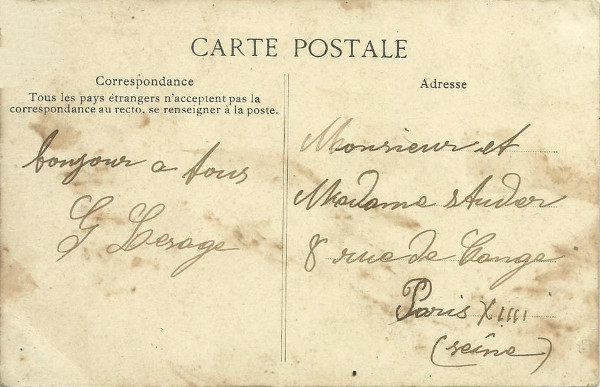 CARTE POSTALE
Correspondance
Tous les pays étrangers n'acceptent pas la
correspondance au recto, se renseigner à la poste.
bonjour a tous
G Lesage
Adresse
Monsieur et
Madame Studer
8 rue de Cange
Paris XIIII
(seine)